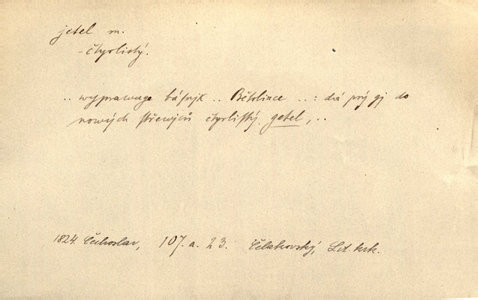 jetel m.
- čtyrlistý.
.. wyprawuge básnjk .. Bětolince ..: dá prý gj do
nowých střewjců čtyrlistý getel, ..
1824 Čechoslav, 107. a. 23. Čelakovský, Lit. krk.